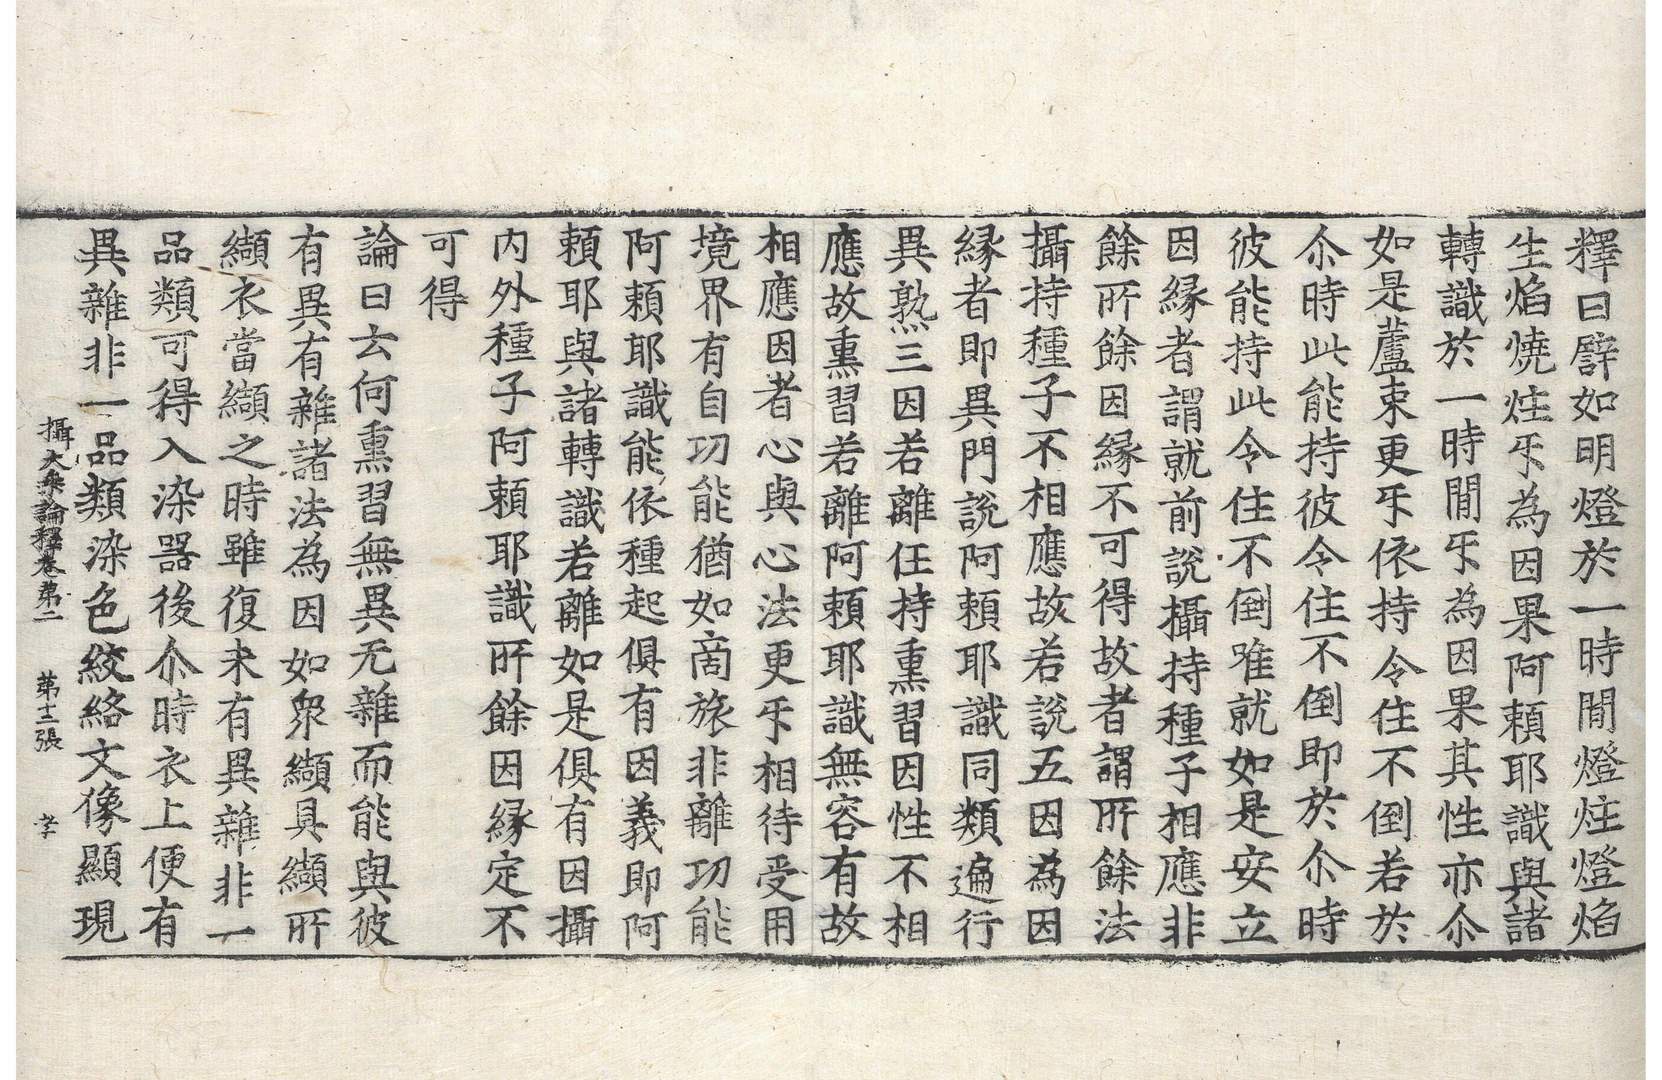 釋曰譬如明燈於一時閒燈炷燈焰
生焰燒炷𠄔為因果阿頼耶識與諸
轉識於一時閒𠄔為因果其性亦尒
如是蘆束更𠄔依持令住不倒若於
尒時此能持彼令住不倒即於尒時
彼能持此令住不倒唯就如是安立
因縁者謂就前說攝持種子相應非
餘所餘因縁不可得故者謂所餘法
攝持種子不相應故若說五因為因
縁者即異門說阿頼耶識同類遍行
異熟三因若離任持熏習因性不相
應故熏習若離阿頼耶識無容有故
相應因者心與心法更𠄔相待受用
境界有自功能猶如商旅非離功能
阿頼耶識能依種起俱有因義即阿
頼耶與諸轉識若離如是俱有因攝
内外種子阿頼耶識所餘因縁定不
可得
論曰云何熏習無異无雜而能與彼
有異有雜諸法為因如衆纈具纈所
纈衣當纈之時雖復未有異雜非一
品類可得入染器後尒時衣上便有
異雜非一品類染色絞絡文像顯現
攝大乘論釋卷第二　第十二張　孝